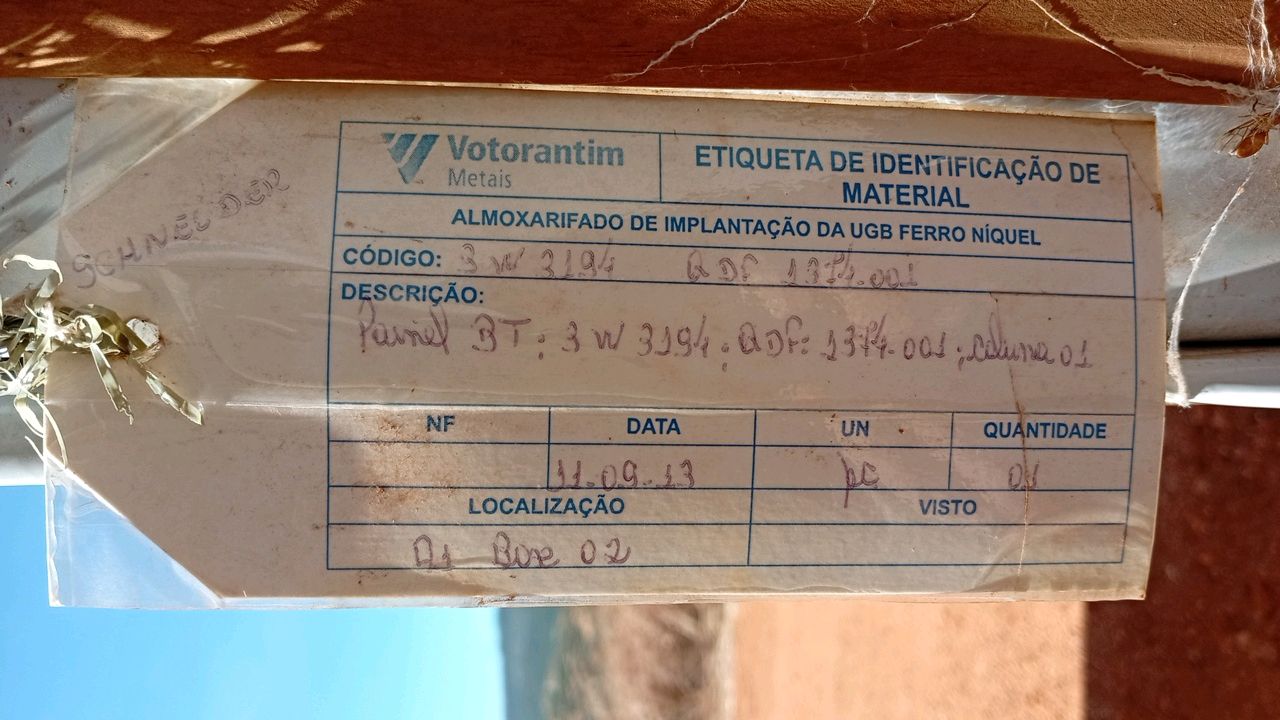 SCHNEIDER
Votorantim
Metais
ETIQUETA DE IDENTIFICAÇÃO DE
MATERIAL
ALMOXARIFADO DE IMPLANTAÇÃO DA UGB FERRO NÍQUEL
CÓDIGO: 3W3194 QDF 1374.001
DESCRIÇÃO:
Painel BT; 3W3194; QDF: 1374.001; coluna 01
NF DATA UN QUANTIDADE
11.09.13 pc 01
LOCALIZAÇÃO VISTO
A1 Box 02